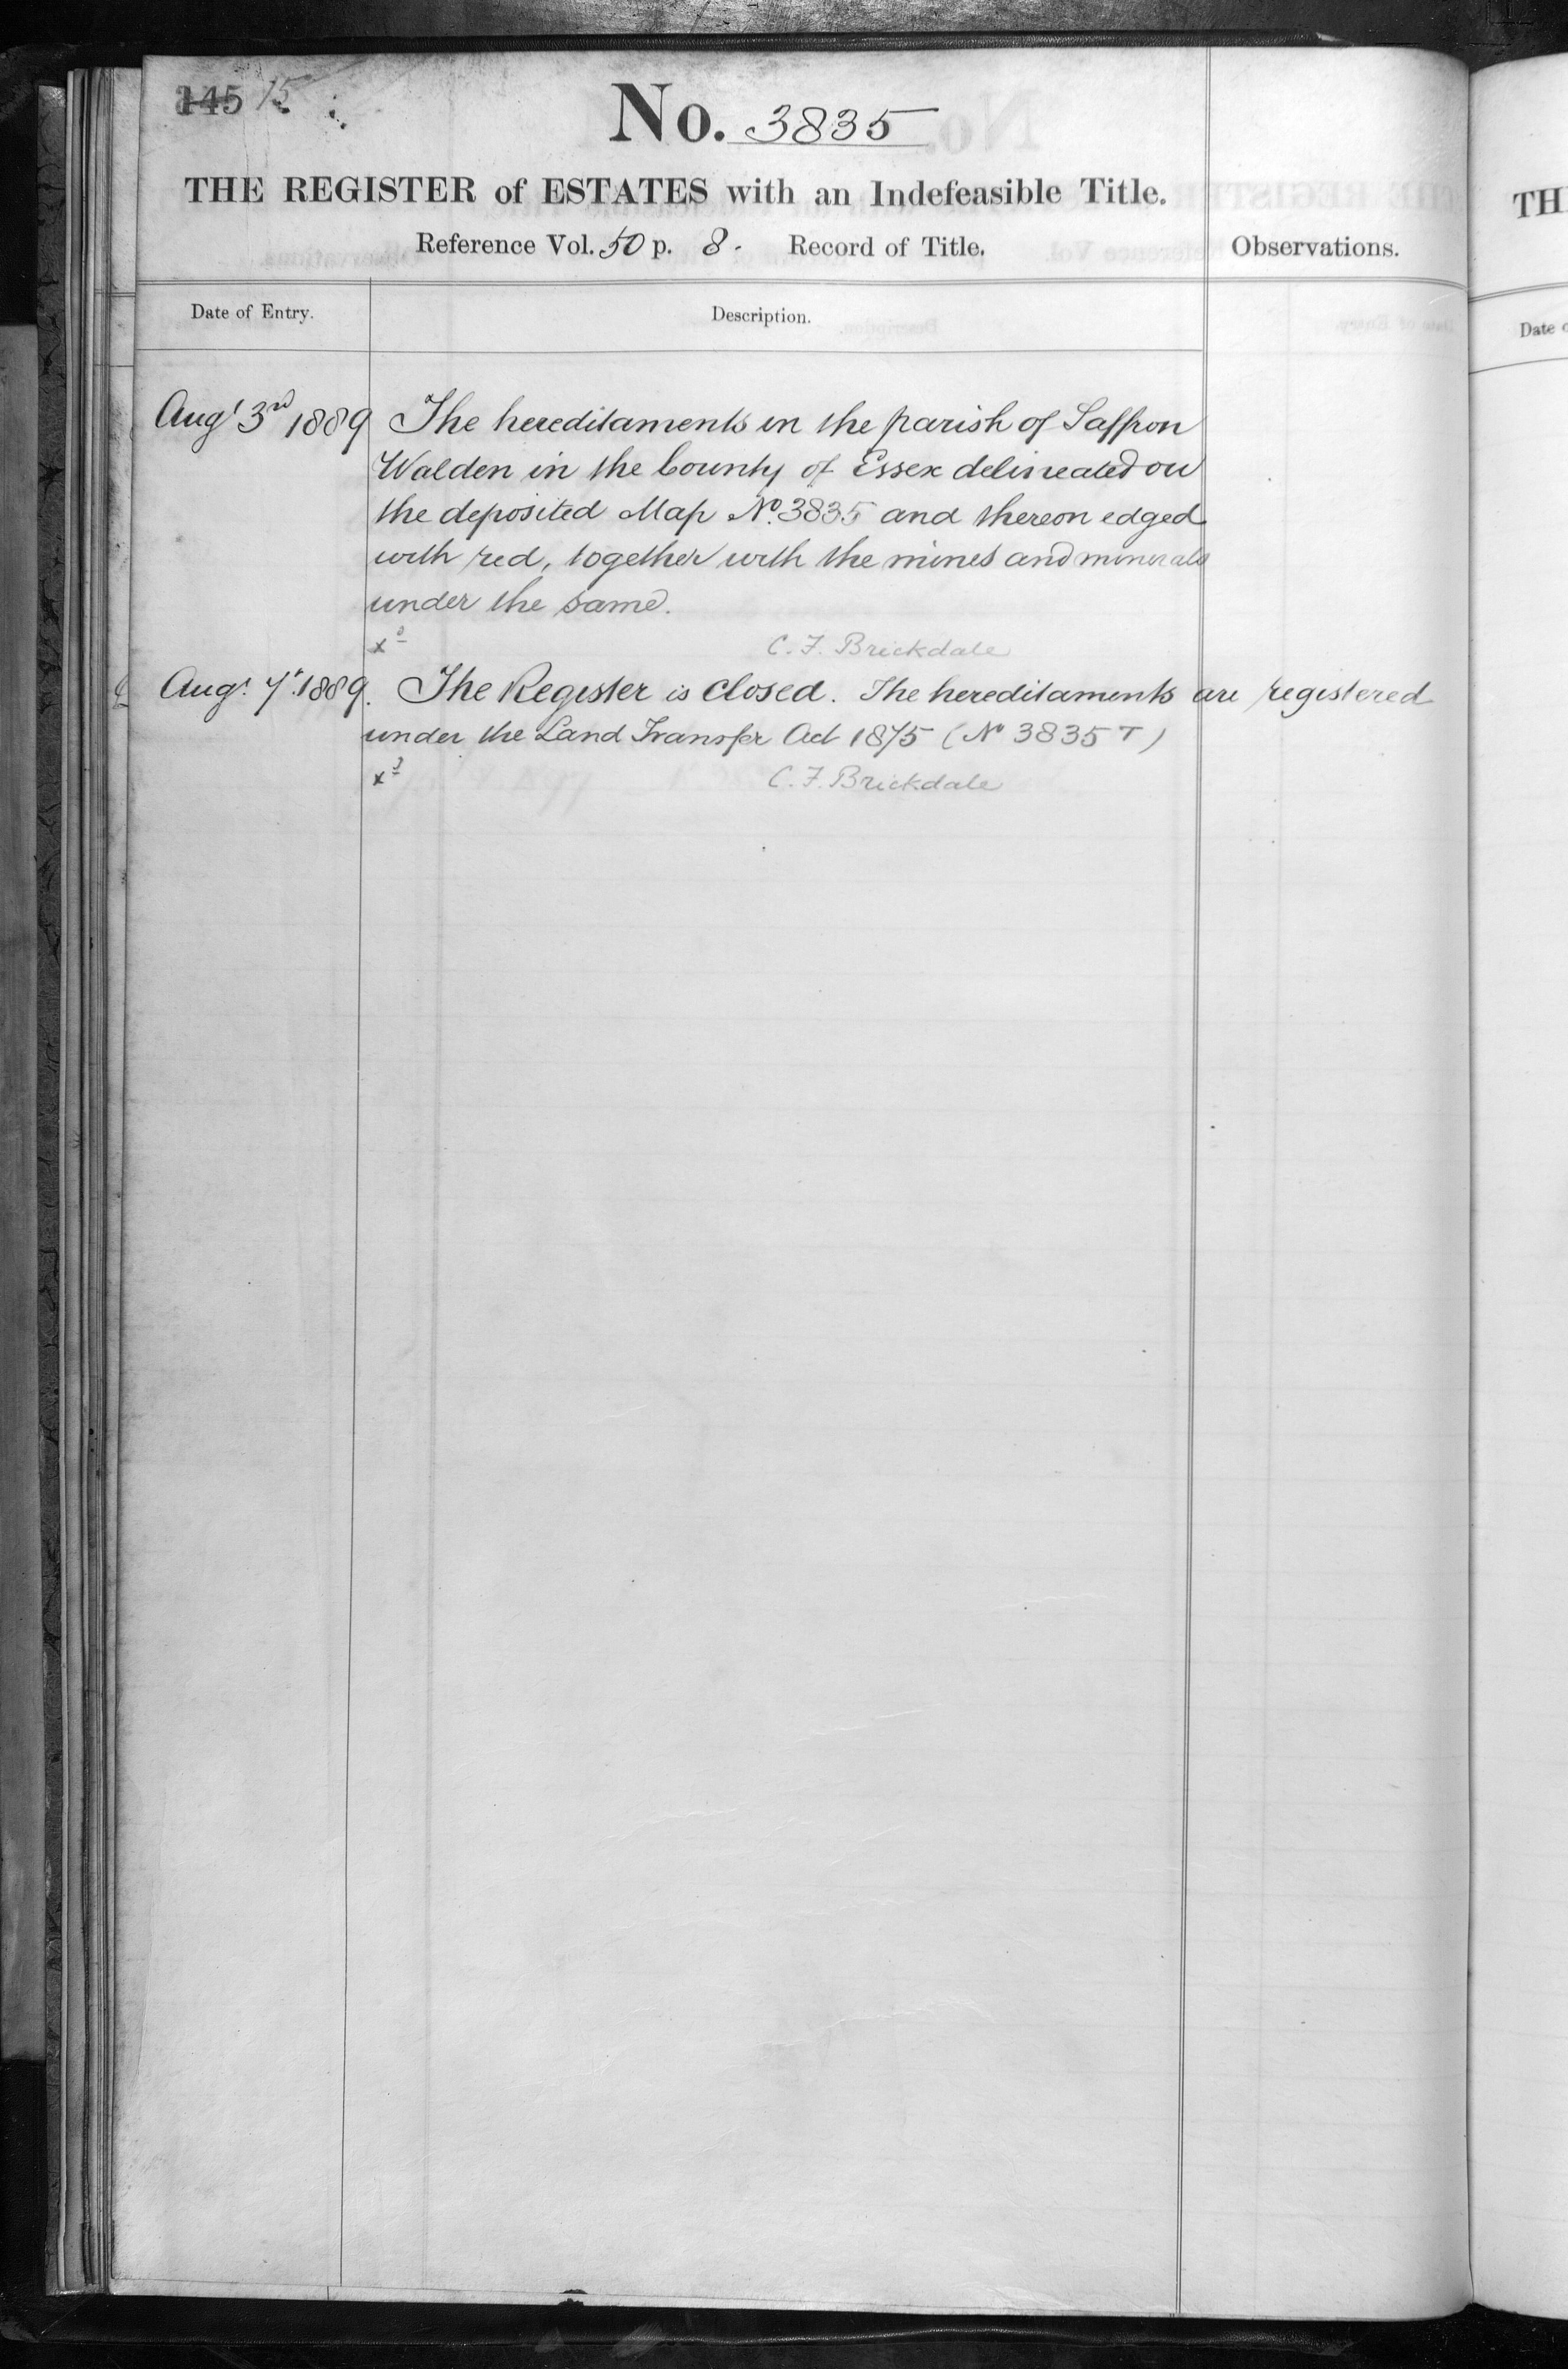 145 15
No. 3835
THE REGISTER of ESTATES with an Indefeasible Title.
Reference Vol. 50 p. 8. Record of Title.
Observations.
Date of Entry.
Description.
Augt 3rd 1889 The hereditaments in the parish of Saffron
Walden in the County of Essex delineated on
the deposited Map No. 3835 and thereon edged
with red, together with the mines and minerals
under the same.
C. F. Brickdale
Augt. 7th. 1889. The Register is closed. The hereditaments are registered
under the Land Transfer Act 1875 (No 3835 T)
C. F. Brickdale
TH
Date